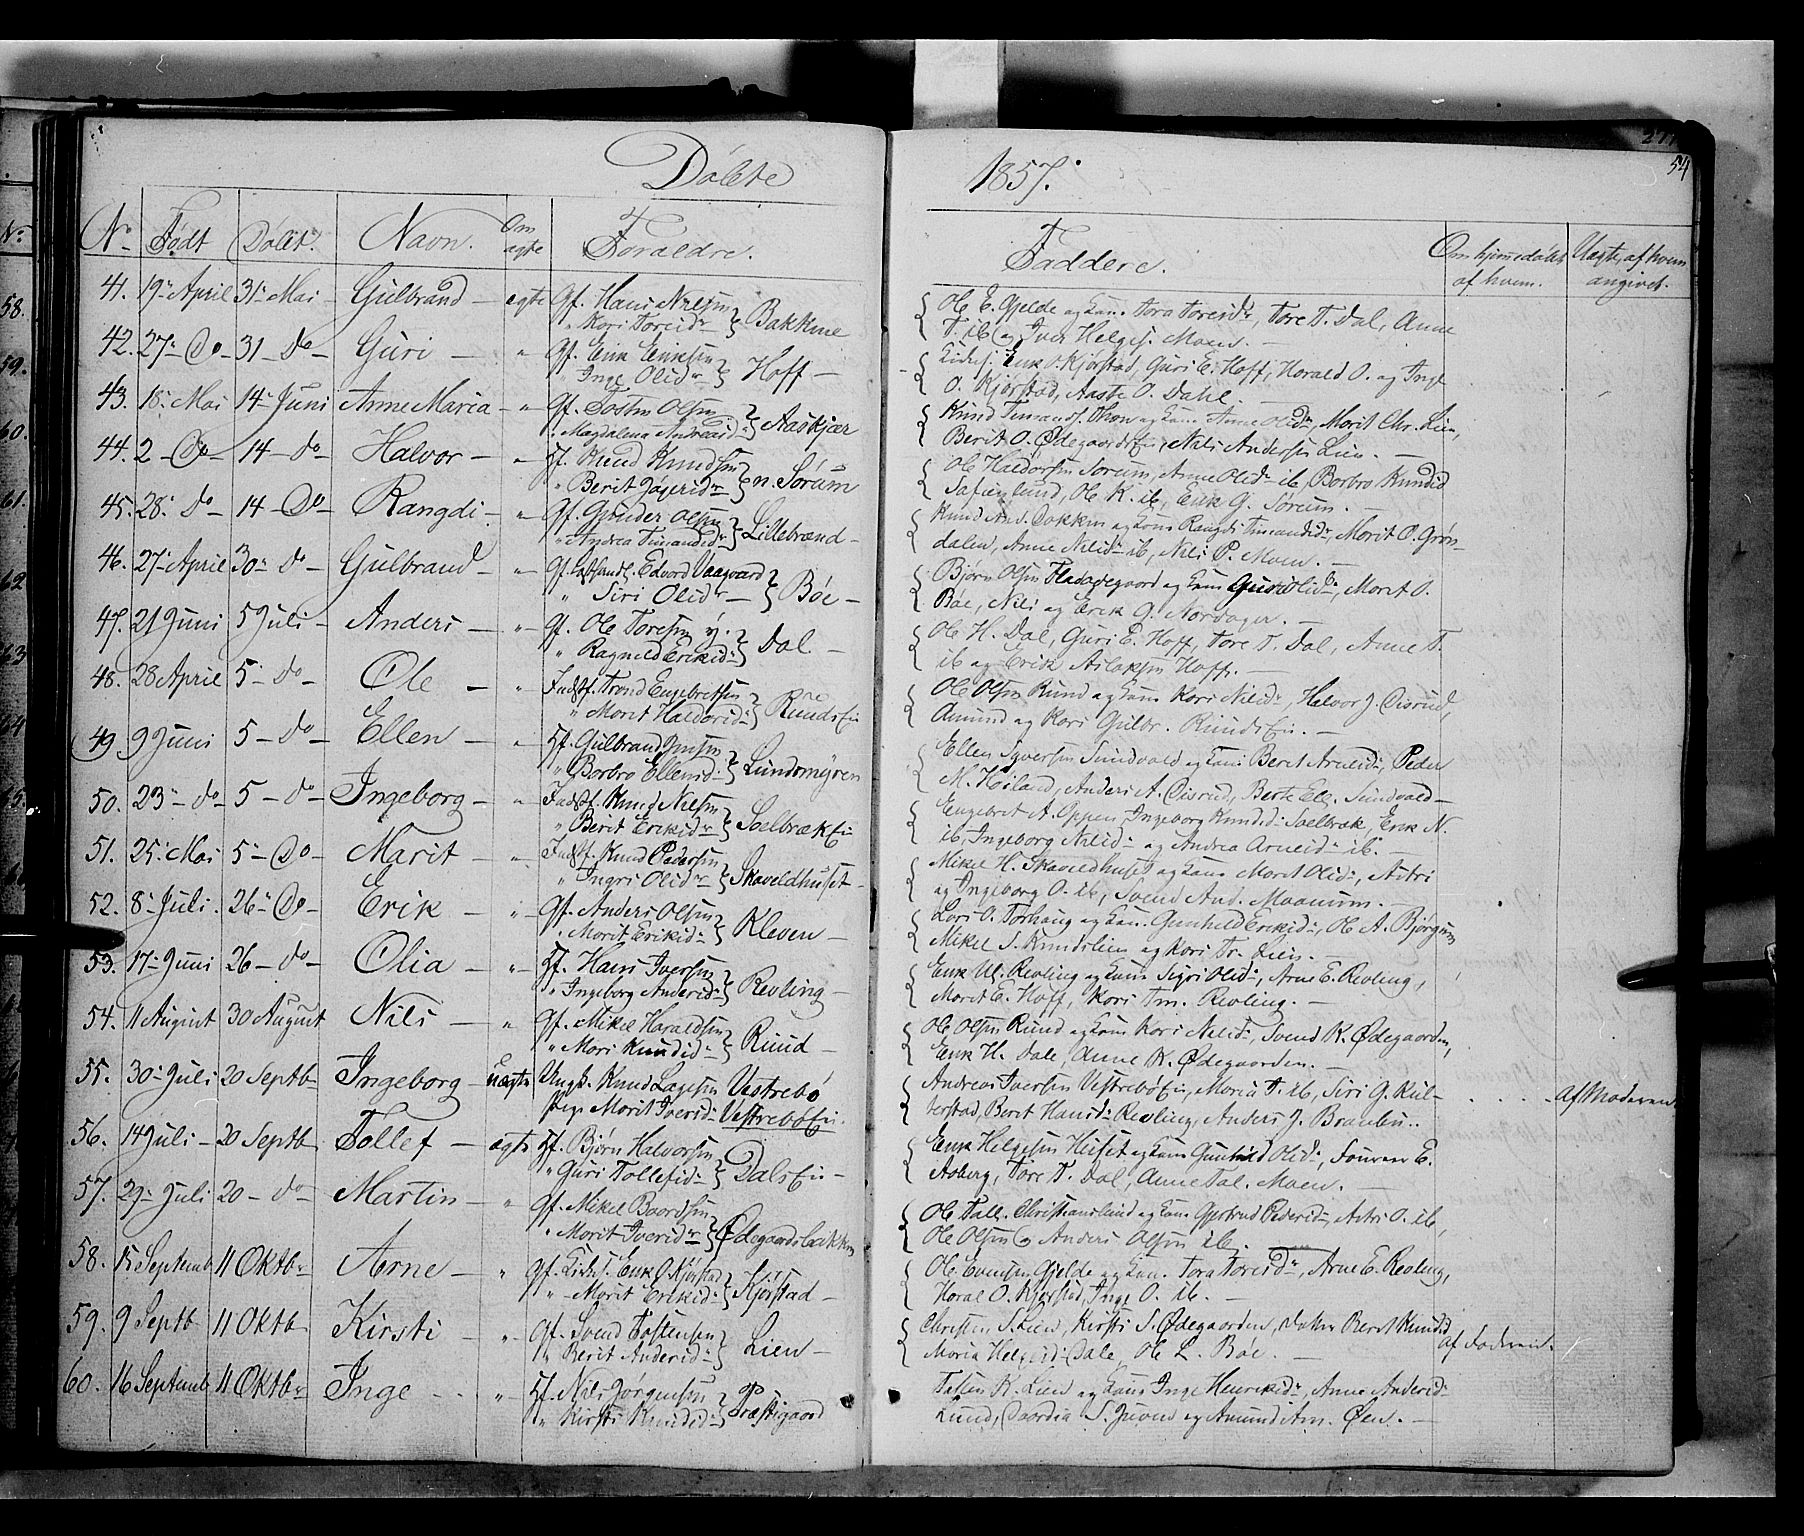 Døbte 1857.
54
No Født Døbt. Navn. Om ægte Forældre. Faddere. Om hjemmedøbt af hvem. Uægte, af hvem angivet.
41. 19de April 31te Mai Gulbrand – ægte Gf. Hans Nilsen
" Kari Toresdr } Bakkene
{ Ole E. Gjelde og Kone Tora Toresdr, Tore T. Dal, Anne
T. ib og Iver Helges. Moen. –
42. 27de Do – 31 – Do – Guri – " Gf. Erik Eriksen
" Inge Olsdr } Hoff –
{ Erik O. Kjørstad, Guri E. Hoff, Harald O. og Inge
O. Kjørstad, Aaste O. Dahl. –
43. 18de Mai 14de Juni Anne Maria – " Gf. Tosten Olsen
" Magdalena Andreasdr } Aaskjær
{ Knud Thon og Kone Anne Olsdr, Marit Chr. Lien,
Berit O. Ødegaards Ei, Nils Andersen Lien. –
44. 2 – Do – 14 – Do – Halvor – " Hf. Knud Knudsen
" Berit } n. Sørum
{ Ole Haldorsen Sørum, Anne Olsdr ib, Borbro Knudsd
Safienlund, Ole K. ib, Erik G. Sørum. –
45. 28de Do – 14 – Do – Rangdi – " Gf. Gunder Olsen
" Andrea } Lillebrænd –
{ Knud og Kone Rangdi, Marit O. Grøn-
dalen, Anne Nilsdr ib, Nils P. Moen. –
46. 27de April 30te Do – Gulbrand – " Gf. Edvard Vaagaard
" Siri Olsdr – } Bøe –
{ Bjørn Olsen og Kone Guri Olsdr, Marit O.
Bøe, Nils og Erik G. Nordager. –
47. 21 Juni 5 Juli – Anders – " Gf. Ole Toresen y.
" Ragnild Eriksdr } Dal –
{ Ole H. Dal, Guri E. Hoff, Tore T. Dal, Anne T.
ib og Erik Aslaksen Hoff. –
48. 28 April 5 – Do – Ole – " Indst. Trond Engebretsen
" Marit Haldorsdr } Ruuds Ei
{ Ole Olsen Ruud og Kone Kari Nilsdr, Halvor J. Disrud,
Amund og Kari Gulbr. Ruuds Ei. –
49. 9 Juni 5 – Do – Ellen – " Hf. Gulbrand
" Borbro Ellensdr } Lundsmyren
{ Ellen Syversen Sundvold og Kone Beret Arnesdr, Peder
M. Heiland, Anders A. Disrud, Berte Ell. Sundvold –
50. 23de Do – 5 – Do – Ingeborg – " Indst. Knud Nilsen
" Berit Eriksdr } Soelbræk Ei
{ Engebret A. Oppen, Ingeborg Knudsdr Soelbræk, Erik N.
ib, Ingeborg Nilsdr og Andrea Arnesdr ib. –
51. 25de Mai 5te Do – Marit – " Indst. Knud Pedersen
" Ingri Olsdr } Skaveldhuset –
{ Mikel H. Skaveldhuset og Kone Marit Olsdr, Astri
og Ingeborg O. ib, Svend And. Maanum. –
52. 8de Juli. 26de Do – Erik – " Gf. Anders Olsen
" Marit Eriksdr } Kleven –
{ Lars O. Torhaug og Kone Gunhild Eriksdr, Ole A. Bjørgum
Mikel S. Knudslien og Kari Tr. Lien. –
53. 17de Juni 26 – Do – Olia – " Hf. Hans Iversen
" Ingeborg Andersdr } Revling –
{ Erik Ul. Revling og Kone Sigri Olsdr, Arne E. Revling,
Marit E. Hoff, Kari Tm. Revling. –
54. 11 August 30 August Nils – " Gf. Mikel Haraldsen
" Mari Knudsdr } Ruud –
{ Ole Olsen Ruud og Kone Kari Nilsdr, Svend K. Ødegaarden,
Erik H. Dale, Anne K. Ødegaarden. –
55. 30te Juli 20 Septbr Ingeborg – uægte Ungk. Knud Larsen Vestrebø
Pige Marit Iversdr Vestrebø Ei.
{ Andreas Iversen Vestrebø Ei, Maria T. ib, Siri G. Kul-
terstad, Beret Hansdr Revling, Anders J. Braaten. . Af Moderen
56. 14 Juli – 20 Septbr Tollef – ægte Hf. Bjørn Halvorsen
" Guri Tollefsdr } Dals Ei –
{ Erik Helgesen Huset og Kone Gunhild Olsdr, E.
Aaberg, Tore T. Dal, Anne Tal. Moen. –
57. 29de Juli 20 – Do – Martin – " Gf. Mikel Baardsen
" Marit Iversdr } Ødegaardsbakken
{ Ole Tall. Christianslund og Kone Gjertrud Pedersdr, Astri O. ib,
Ole Olsen og Anders Olsen ib.
58. 15 Septemb 11 Oktbr Arne – " Gf. Erik O. Kjørstad
" – Marit Eriksdr } Kjørstad –
{ Ole Evensen Gjelde og Kone Tora Toresdr, Arne E. Revling,
Haral O. Kjørstad, Inge O. ib. –
59. 9 Septb 11 Oktb Kirsti – " Gf. Svend Tostensen
" Berit Andersdr } Lien –
{ Christen S. Lien, Kirsti S. Ødegaarden, Beret Knudsd
Maria Helgesdr Dale, Ole L. Bøe. – af Faderen.
60. 16 Septemb 11 Oktbr Inge – " Hf. Nils Jørgensen
" Kirsti Knudsdr } Præstegaard
Tosten K. Lien og Kone Inge Henriksdr, Anne Andersd
Lund, S. Juven og Amund Am. Øen. –